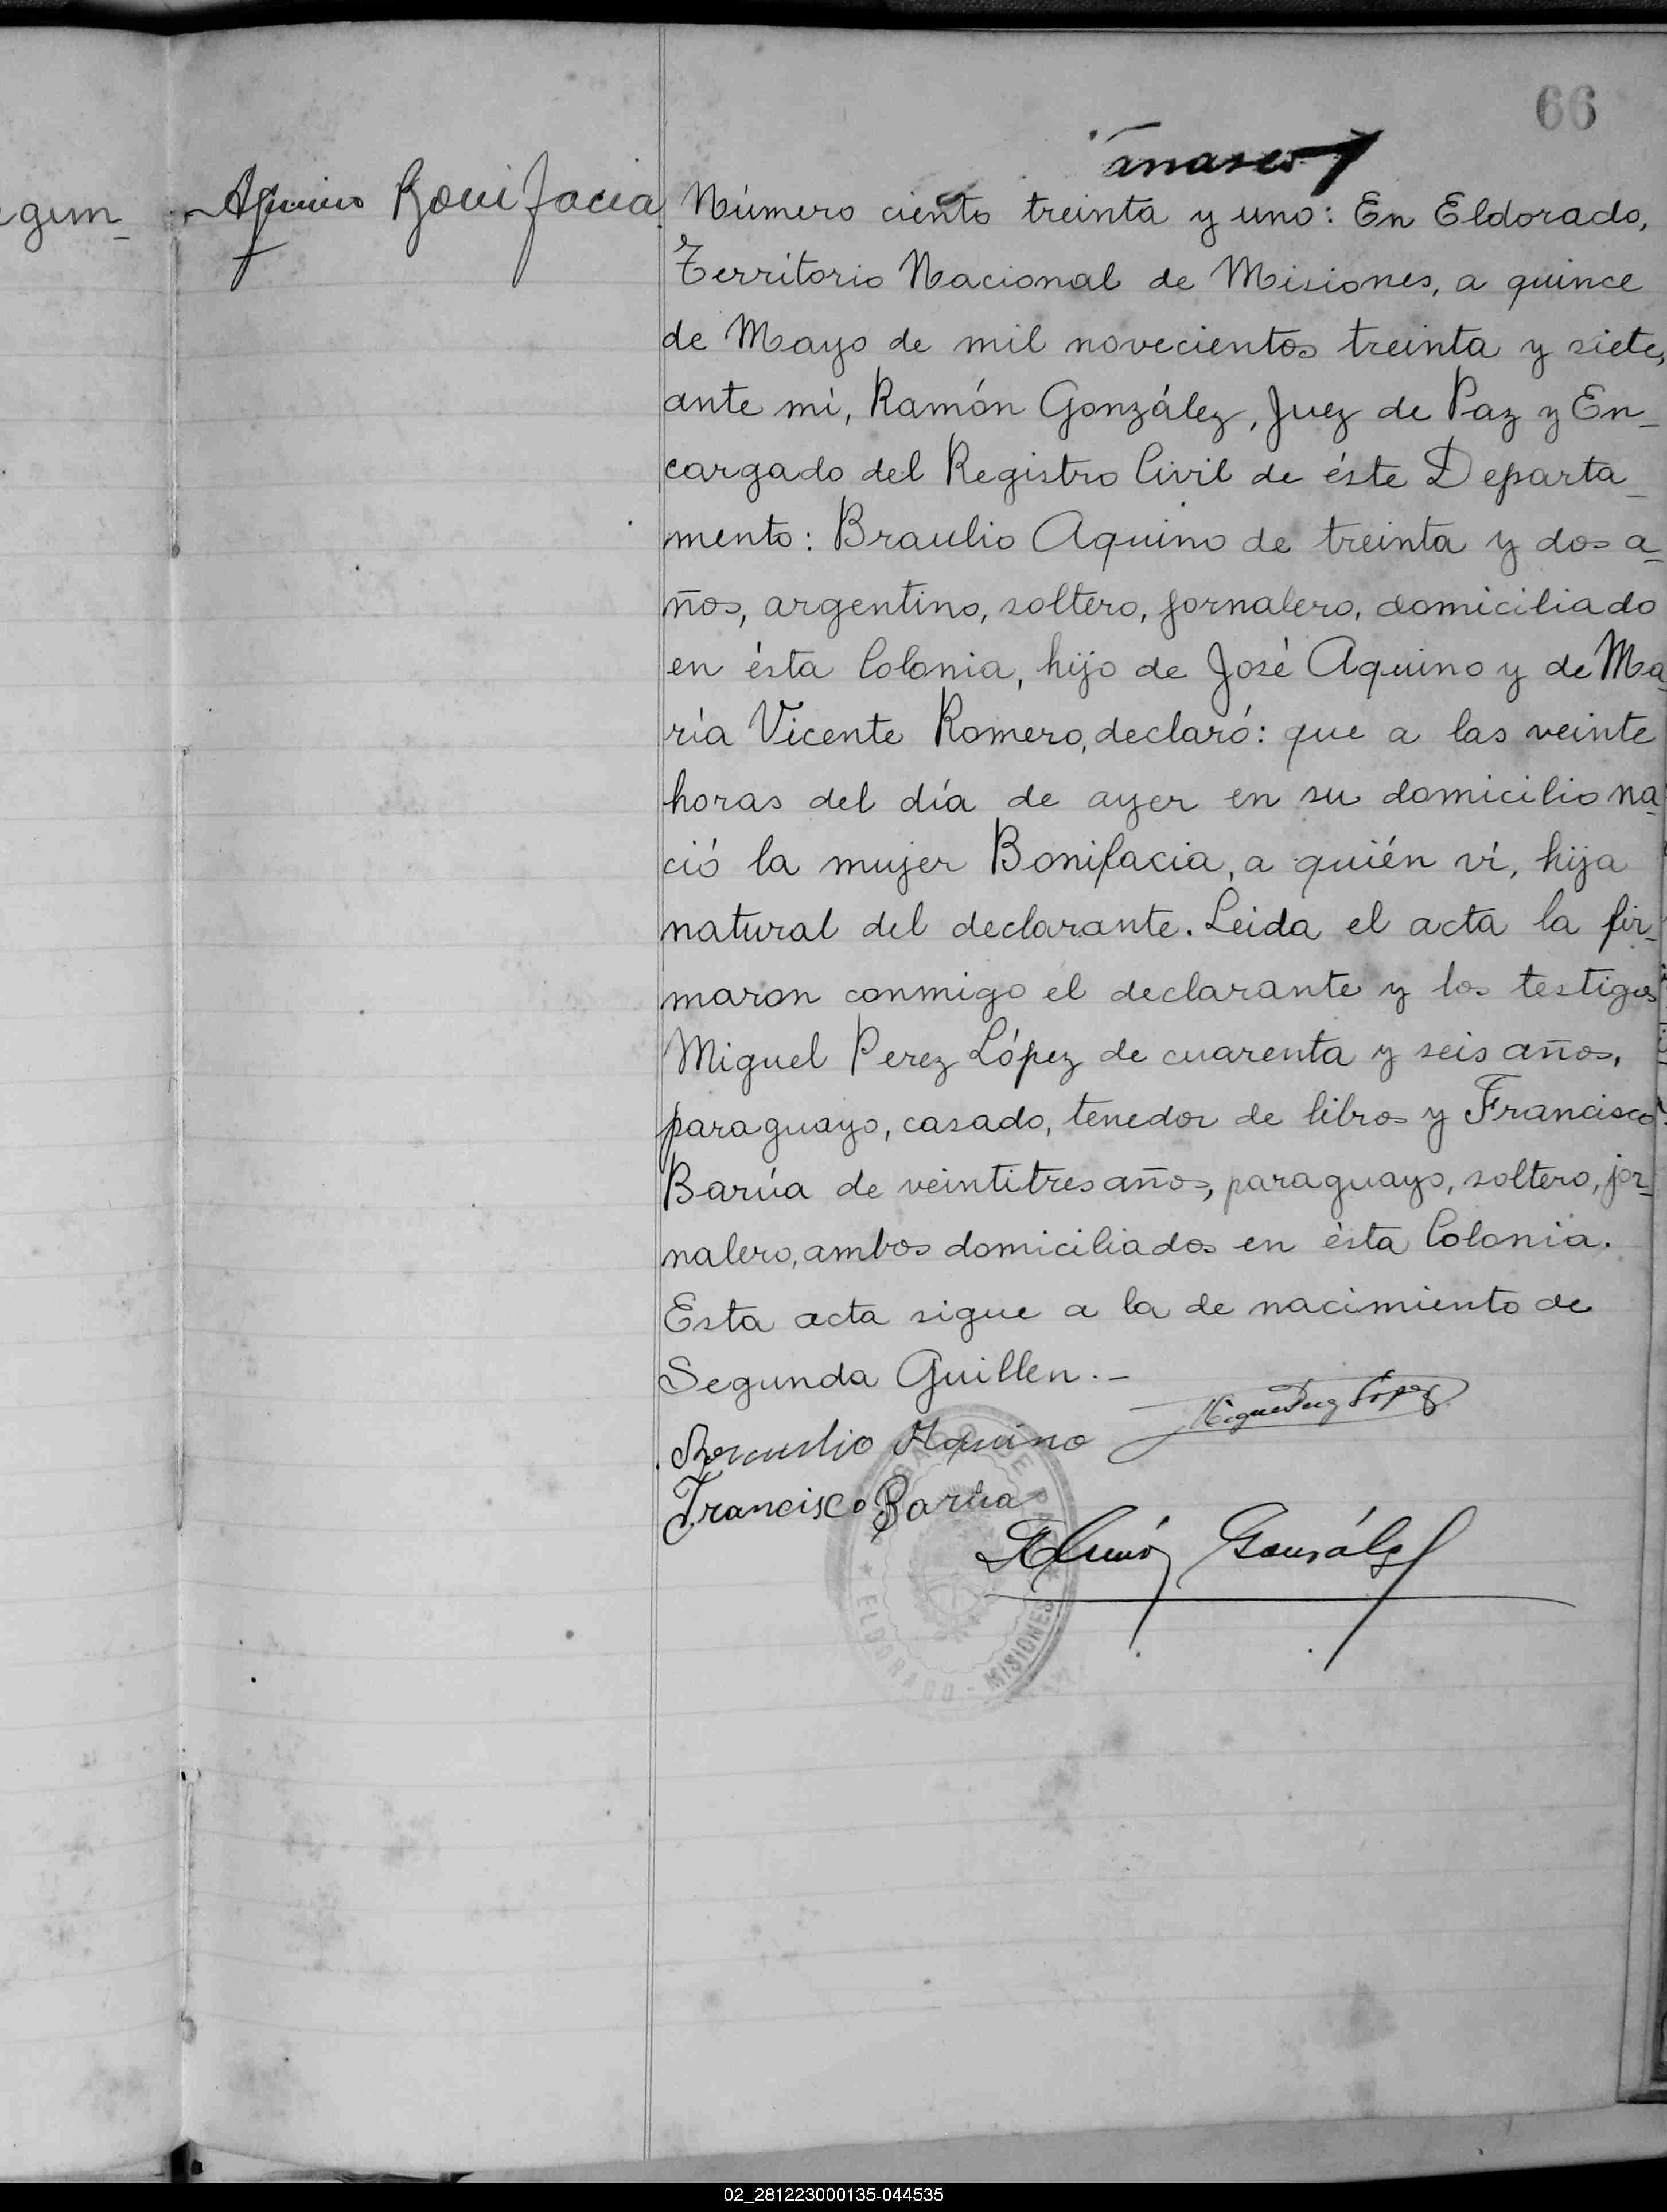 66
Aquino Bonifacia
Número ciento treinta y uno: En Eldorado,
Territorio Nacional de Misiones, a quince
de Mayo de mil novecientos treinta y siete,
ante mí, Ramón González, Juez de Paz y En_
cargado del Registro Civil de éste Departa_
mento: Braulio Aquino de treinta y dos a_
ños, argentino, soltero, jornalero, domiciliado
en ésta Colonia, hijo de José Aquino y de Ma_
ría Vicente Romero, declaró: que a las veinte
horas del día de ayer en su domicilio na_
ció la mujer Bonifacia, a quién ví, hija
natural del declarante. Leida el acta la fir_
maron conmigo el declarante y los testigos
Miguel Perez López de cuarenta y seis años,
paraguayo, casado, tenedor de libros y Francisco
Barúa de veintitres años, paraguayo, soltero, jor_
nalero, ambos domiciliados en ésta Colonia.
Esta acta sigue a la de nacimiento de
Segunda Guillen.-
Miguel Perez López
Braulio Aquino
Francisco Barúa
Ramón González
ELDORADO - MISIONES
02_281223000135-044535